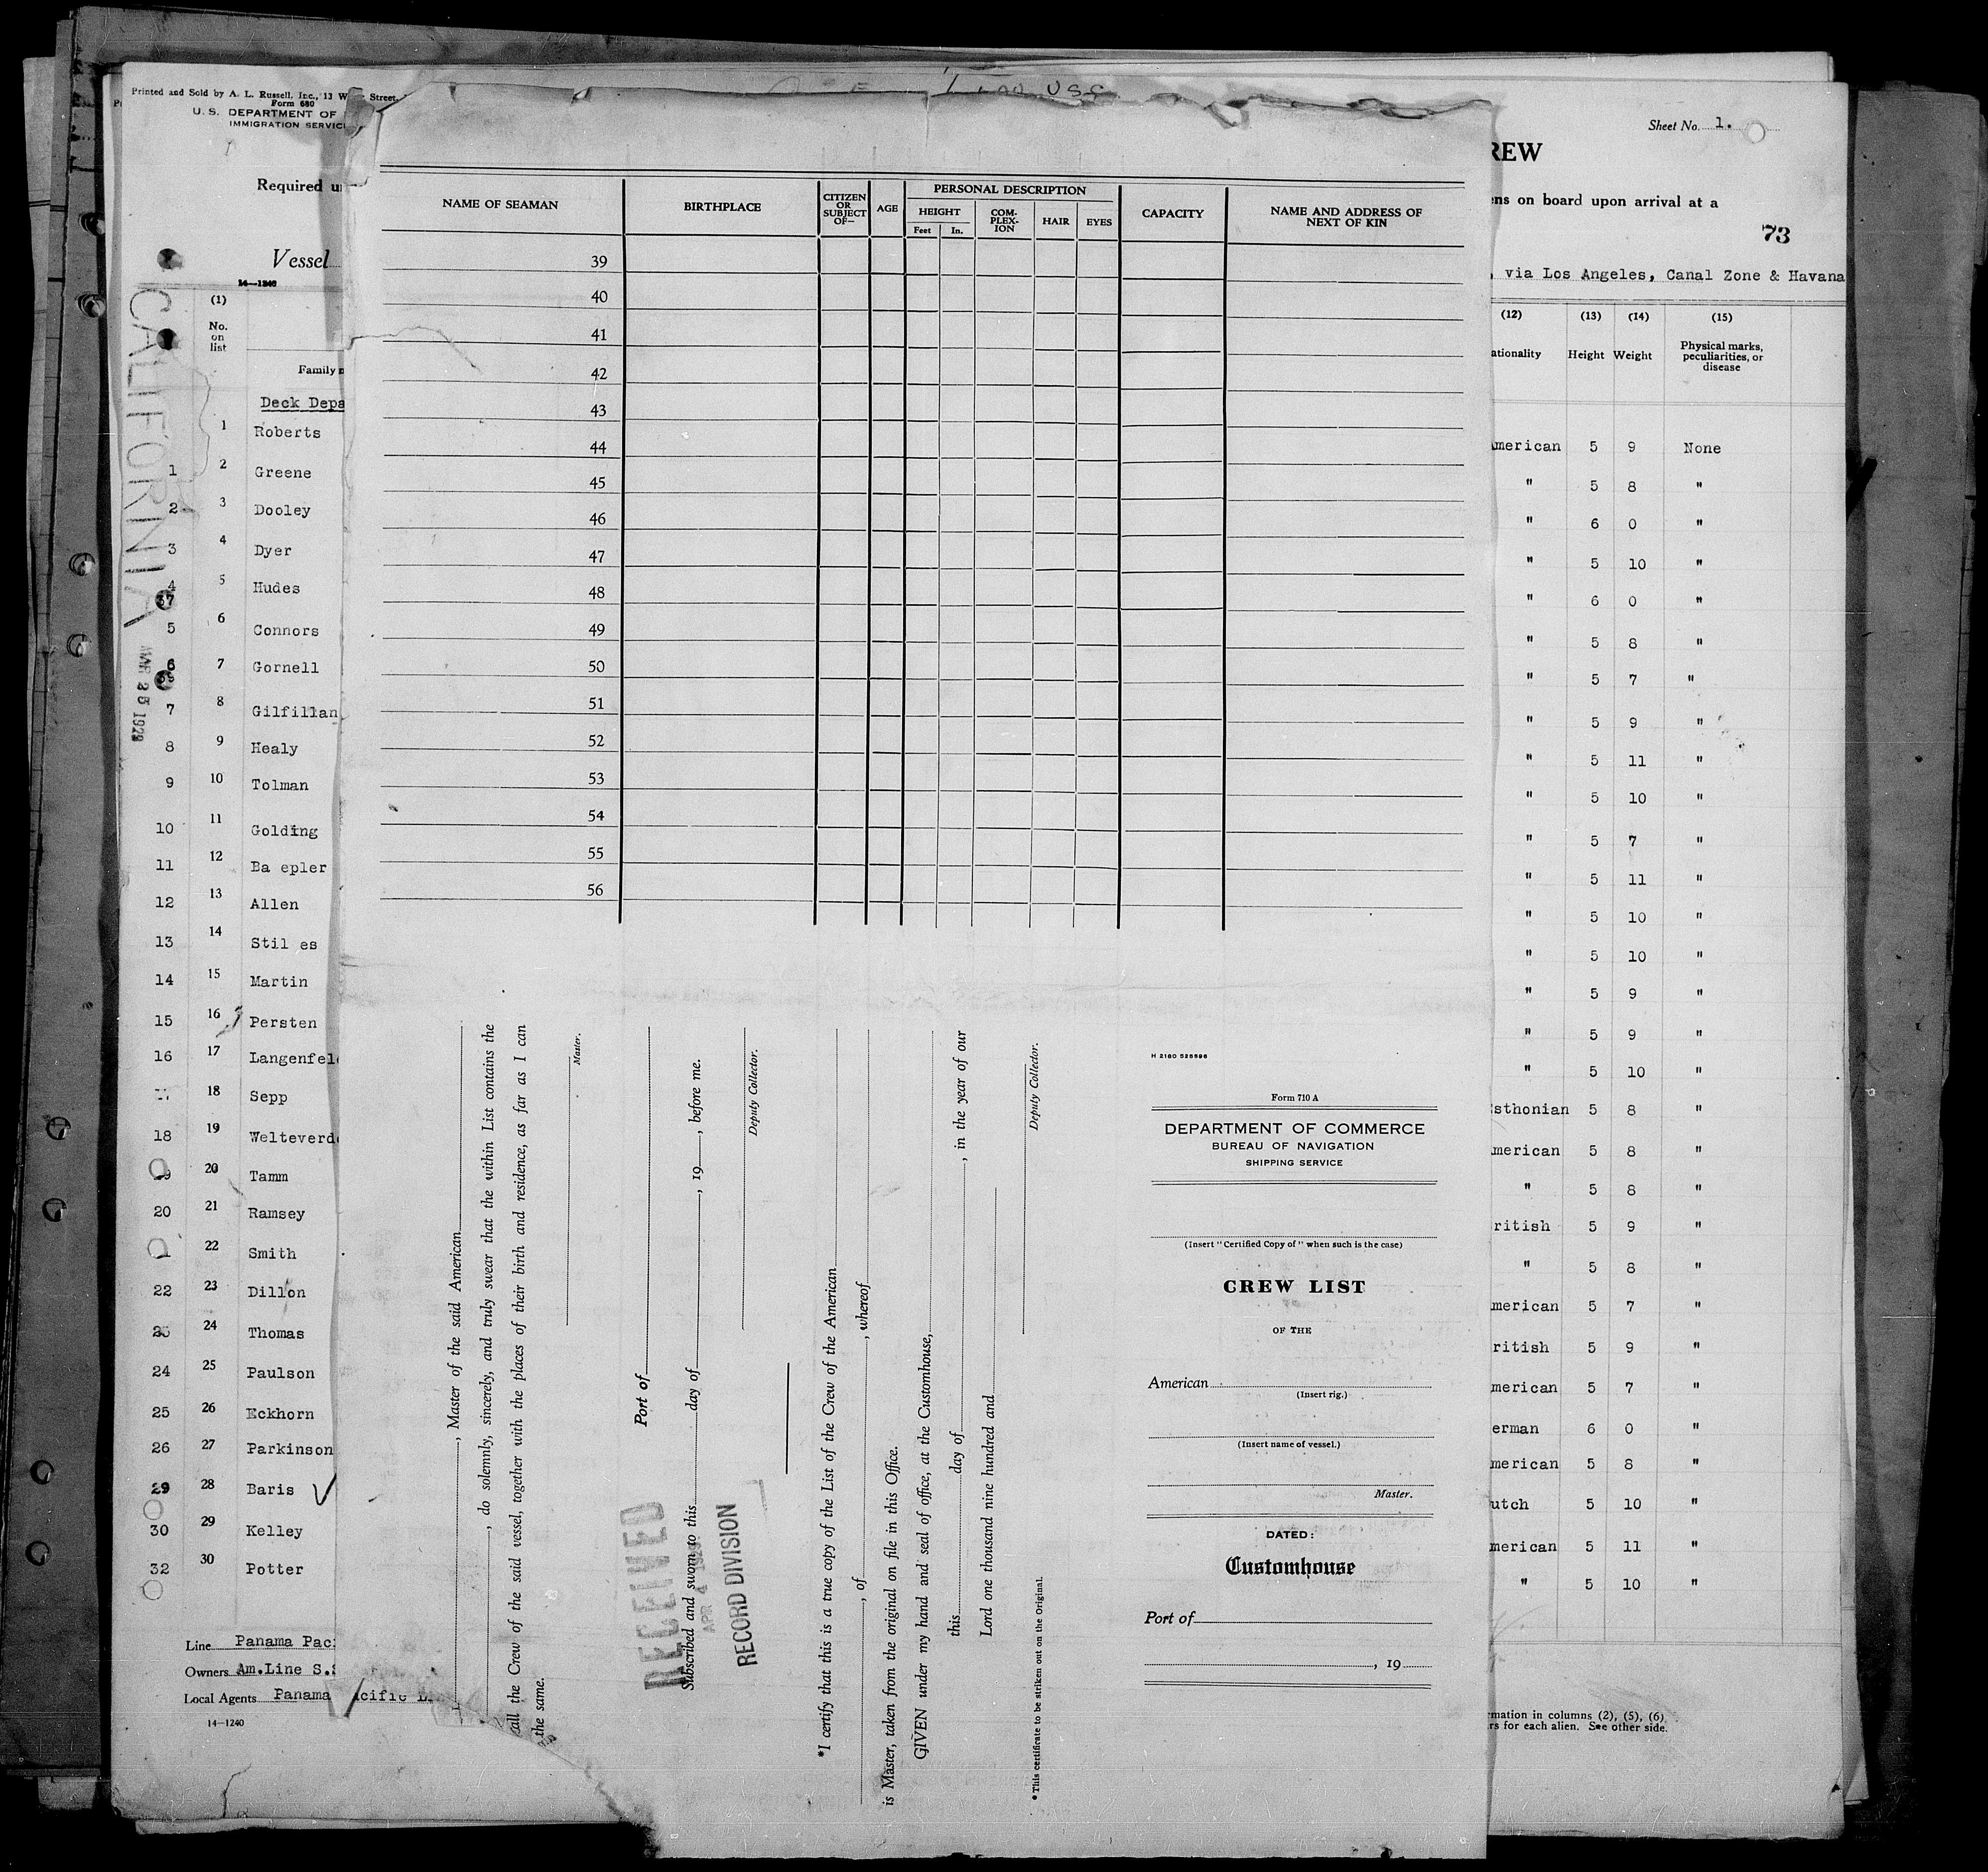 Printed and Sold by A. L. Russell, Inc., 13 Street,
Form 680
U. S. DEPARTMENT OF
IMMIGRATION SERVICE
Required
Vessel
14—1240
(1)
No.
on
list
Family
CALIFORNIA
MAR 25 1929
Deck
1 Roberts
1 2 Greene
2 3 Dooley
3 4 Dyer
4 5 Hudes
37
5 6 Connors
6 7 Gornell
7 8 Gilfillan
8 9 Healy
9 10 Tolman
10 11 Golding
11 12 Ba epler
12 13 Allen
13 14 Stil es
14 15 Martin
15 16 Persten
16 17 Langenfel
18 Sepp
18 19 Welteverd
20 Tamm
20 21 Ramsey
22 Smith
22 23 Dillon
24 Thomas
24 25 Paulson
25 26 Eckhorn
26 27 Parkinson
29 28 Baris
30 29 Kelley
32 30 Potter
Line Panama Pac
Owners Am.Line S.S
Local Agents Panama acific
14—1240
NAME OF SEAMAN
BIRTHPLACE
CITIZEN
OR
SUBJECT
OF—
AGE
PERSONAL DESCRIPTION
HEIGHT
Feet In.
COM-
PLEX-
ION
HAIR
EYES
CAPACITY
NAME AND ADDRESS OF
NEXT OF KIN
39
40
41
42
43
44
45
46
47
48
49
50
51
52
53
54
55
56
, Master of the said American
, do solemnly, sincerely, and truly swear that the within List contains the
all the Crew of the said vessel, together with the places of their birth and residence, as far as I can
the same.
Master.
Port of
Subscribed and sworn to this day of , 19 , before me.
Deputy Collector.
RECEIVED
APR 4 192
RECORD DIVISION
*I certify that this is a true copy of the List of the Crew of the American
, of , whereof
is Master, taken from the original on file in this Office.
GIVEN under my hand and seal of office, at the Customhouse,
this day of , in the year of our
Lord one thousand nine hundred and
Deputy Collector.
*This certificate to be striken out on the Original.
H 2180 525596
Form 710 A
DEPARTMENT OF COMMERCE
BUREAU OF NAVIGATION
SHIPPING SERVICE
(Insert "Certified Copy of" when such is the case)
CREW LIST
OF THE
American
(Insert rig.)
(Insert name of vessel.)
Master.
DATED:
Customhouse
Port of
, 19
Sheet No. 1.
REW
ens on board upon arrival at a
73
, via Los Angeles, Canal Zone & Havana
(12) (13) (14) (15)
ationality Height Weight Physical marks,
peculiarities, or
disease
merican 5 9 None
" 5 8 "
" 6 0 "
" 5 10 "
" 6 0 "
" 5 8 "
" 5 7 "
" 5 9 "
" 5 11 "
" 5 10 "
" 5 7 "
" 5 11 "
" 5 10 "
" 5 10 "
" 5 9 "
" 5 9 "
" 5 10 "
sthonian 5 8 "
merican 5 8 "
" 5 8 "
ritish 5 9 "
" 5 8 "
merican 5 7 "
ritish 5 9 "
merican 5 7 "
erman 6 0 "
merican 5 8 "
utch 5 10 "
merican 5 11 "
" 5 10 "
rmation in columns (2), (5), (6)
rs for each alien. See other side.